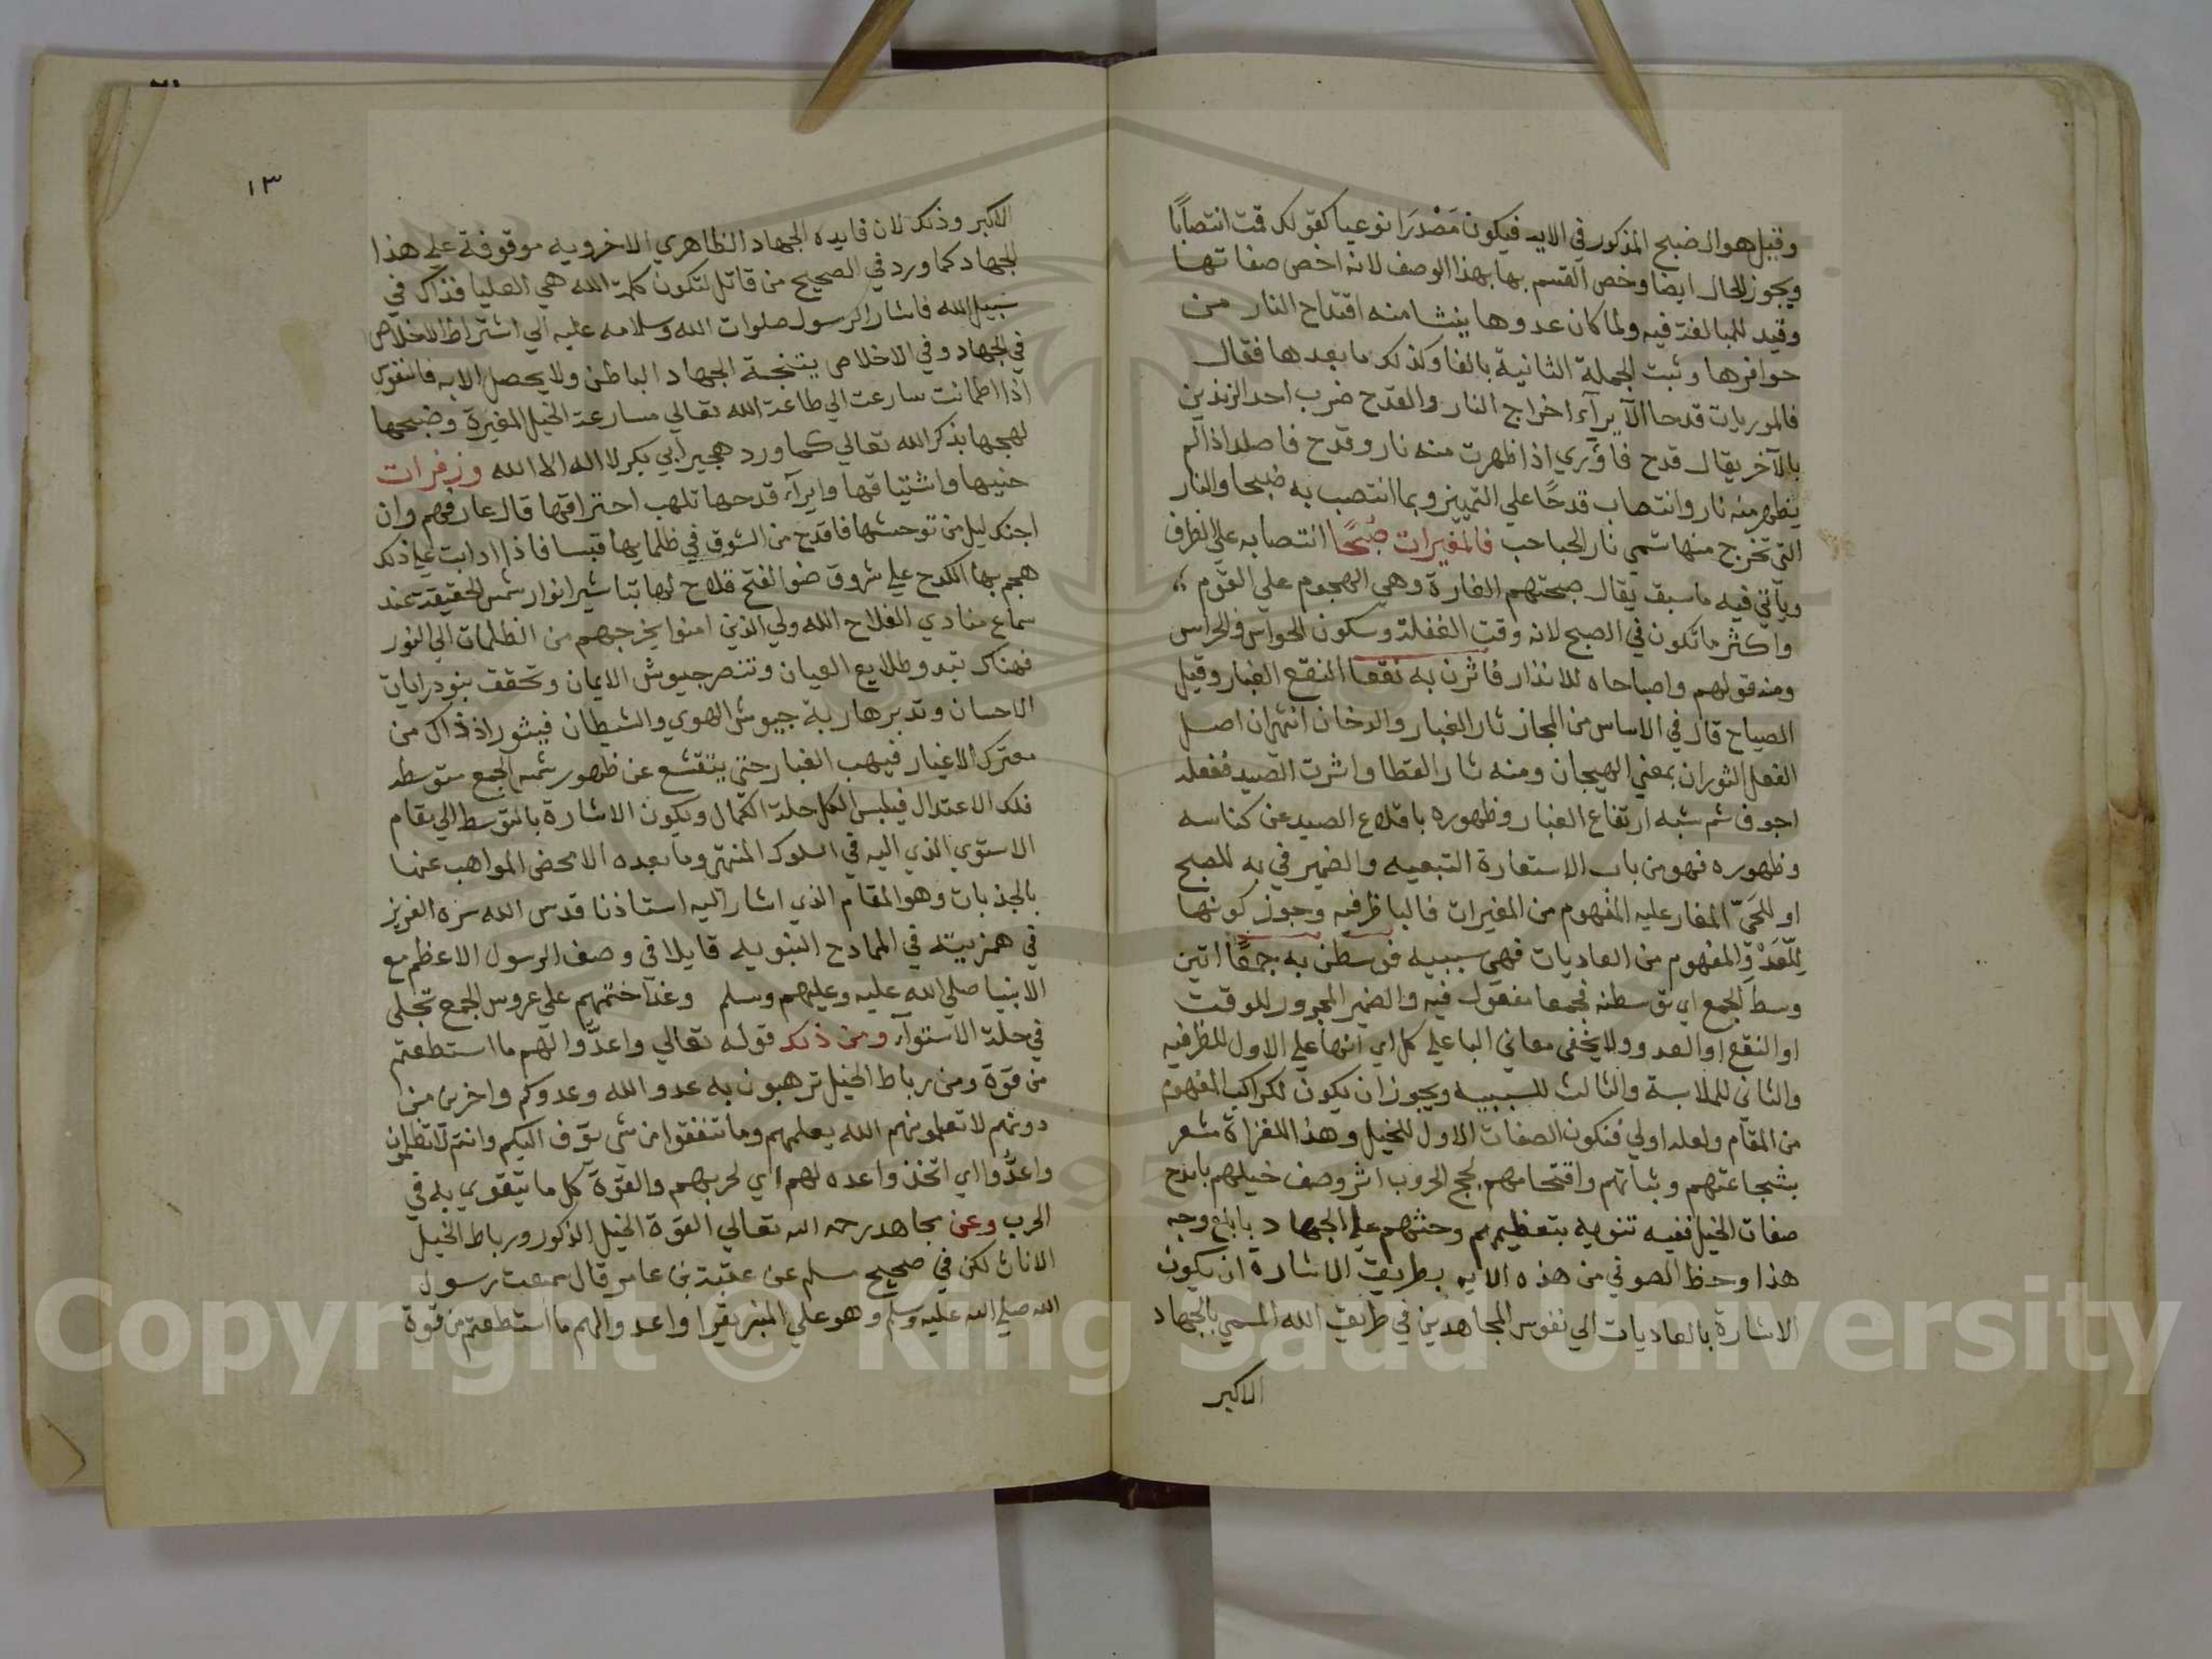 وقيل هو الضبح المذكور في الايه فيكون مَصْدَرَا نوعيا كقولك قمت انتصابًا
ويجوز الحال ايضا وخص القسم بها بهذا الوصف لانه اخص صفاتها
وقيد للمبالغة فيه ولما كان عدوها ينشا منه اقتداح النار من
حوافرها رتبت الجملة الثانية بالفا وكذلك ما بعدها فقال
فالموريات قدحا الايرآء اخراج النار والقدح ضرب احد الزندين
بالآخر يقال قدح فاوري اذا ظهرت منه نار وقدح فاصلد اذا لم
يظهر منه نار وانتصاب قدحًا علي التمييز وبما انتصب به ضبحا والنار
التي تخرج منها تسمي نار الحباحب فالمغيرات صُبحًا انتصابه علي الظرف
ويأتي فيه ما سبق يقال صبحتهم الغارة وهي الهجوم علي القوم
واكثر ما تكون في الصبح لانه وقت الغفلة وسكون الحواس والحراس
ومنه قولهم واصباحاه للانذار فاثرن به نقعا النقع الغبار وقيل
الصياح قال في الاساس من المجاز ثار الغبار والدخان انتهى ان اصل
الفعل الثوران بمعني الهيجان ومنه ثار القطا واثرت الصيد ففعله
اجوف ثم شبه ارتفاع الغبار وظهوره باقلاع الصيد عن كناسه
وظهوره فهو من باب الاستعارة التبعيه والضمير في به للصبح
او للحَيّ المغار عليه المفهوم من المغيرات فالبا ظرفيه وجوز كونها
للعَدْوِ المفهوم من العاديات فهي سببيه فوسطن به جمعًا اتين
وسط الجمع اي توسطنه فجمعا مفعول فيه والضمير المجرور للوقت
او النقع او العدو ولا يخفى معاني البا علي كل اي انها علي الاول للظرفيه
والثاني للملابسة والثالث للسببيه ويجوز ان يكون للراكب المفهوم
من المقام ولعله اولي فتكون الصفات الاول للخيل وهذا للغزاة مشعر
بشجاعتهم وثباتهم واقتحامهم لجج الحروب اثر وصف خيلهم بابدح
صفات الخيل ففيه تنويه بتعظيمهم وحثهم علي الجهاد بابلغ وجه
هذا وحظ الصوفي من هذه الايه بطريق الاشارة ان يكون
الاشارة بالعاديات الي نفوس المجاهدين في طريق الله المسمي بالجهاد
الاكبر
١٣
الاكبر وذلك لان فايده الجهاد الظاهري الاخرويه موقوفة علي هذا
الجهاد كما ورد في الصحيح من قاتل لتكون كلمة الله هي العليا فذاك في
سبيل الله فاشار الرسول صلوات الله وسلامه عليه الي اشتراط الاخلاص
في الجهاد وفي الاخلاص يتنجة الجهاد الباطن ولا يحصل الا به فالنفوس
اذا اطمانت سارعت الي طاعة الله تعالي مسارعة الخيل المغيرة وضبحها
لهجها بذكر الله تعالي كما ورد هجير أبي بكر لا اله الا الله وزفرات
حنينها واشتياقها وايرآء قدحها تلهب احتراقها قال عارفهم وان
اجنك ليل من توحشها فاقدح من الشوق في ظلمايها قبسا فاذا دابت علي ذلك
هجم بها الكدح علي شروق ضو الفتح فلاح لها تباشير انوار شمس الحقيقة عند
سماع منادي الفلاح الله ولي الذين امنوا يخرجهم من الظلمات الي النور
فهناك تبدو طلايع العيان وتنصر جيوش الايمان وتخفق بنود رايات
الاحسان وتدبر هاربة جيوش الهوي والشيطان فيثور اذ ذاك من
معترك الاغيار فيهب الغبار حتي يتقشع عن ظهور شمس الجمع متوسطه
فلك الاعتدال فيلبس الكل حلة الكمال ويكون الاشارة بالتوسط الي مقام
الاستوي الذي اليه في السلوك المنتهى وما بعده الا محض المواهب عنها
بالجذبات وهو المقام الذي اشار اليه استاذنا قدس الله سره العزيز
في همزيته في المادح النبويه قايلا في وصف الرسول الاعظم مع
الانبيا صلي الله عليه وعليهم وسلم وغدا ختمهم علي عروس الجمع تجلى
في حلة الاستوآء ومن ذلك قوله تعالي واعدّوا لهم ما استطعتم
من قوة ومن رباط الخيل ترهبون به عدو الله وعدوكم واخرين من
دونهم لا تعلمونهم الله يعلمهم وما تنفقوا من شي يوَف اليكم وانتم لا تظلمون
واعدُّوا اي اتخذ واعده لهم اي لحربهم والقوّة كل ما يتقوي به في
الحرب وعن مجاهد رحمه الله تعالي القوة الخيل الذكور ورباط الخيل
الاناث لكن في صحيح مسلم عن عقبة بن عامر قال سمعت رسول
الله صلي الله عليه وسلم وهو علي المنبر يقرا واعدوا لهم ما استطعتم من قوة
Copyright © King Saud University